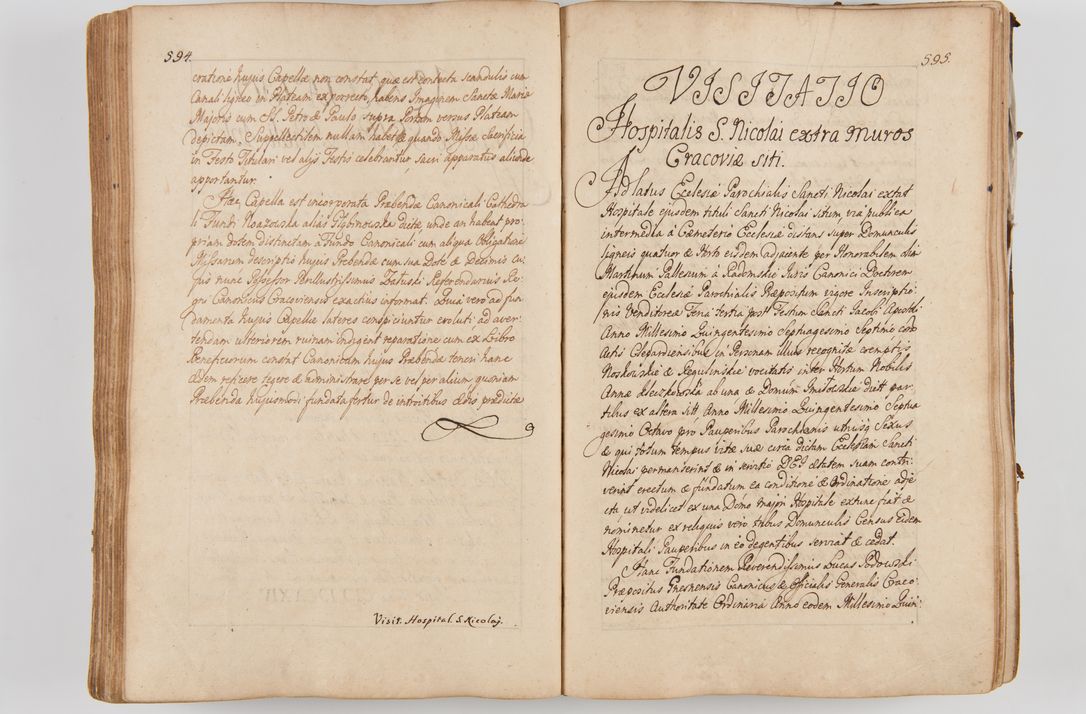 594.
cratione hujus Capellæ non constat quæ est contecta scandulis cum
Canali ligneo in Plateam exporrecto, habens Imaginem Sanctæ Mariæ
Majoris cum SS. Petro & Paulo supra Portam versus Plateam
depictam, Suppellectilem nullam habet & quando Missæ Sacrificia
in Festo Titulari vel alijs Festis celebrantur, sacri apparatus aliunde
apportantur.
Hæc Capella est incorporata Præbendæ Canonicali Cathedra
li Fundi dictæ, unde an habeat pro,
priam dotem distinctam à Fundo Canonicali cum aliqua Obligatione
Missarum descriptio hujus Præbendæ cum sua Dote & Decimis cu,
jus nunc Possessor Perillustrissimus Załuski Referendarius Re,
gni Canonicus Cracoviensis exactius informat. Quia vero ad fun,
damenta hujus Capellæ lateres conspiciuntur evoluti ad aver,
tendam ulteriorem ruinam indigent reparatione cum ex Libro
Beneficiorum constat Canonicum hujus Præbendæ teneri hanc
ædem reficere tegere & administrare per se vel per alium, quoniam
Præbenda hujusmodi fundata fertur de introitibus ædis prædictæ
Visit. Hospital. S. Nicolaj.
595.
VISITATIO
Hospitalis S. Nicolai extra muros
Cracoviæ siti.
Ad latus Ecclesiæ Parochialis Sancti Nicolai extat
Hospitale ejusdem tituli Sancti Nicolai situm, via publica
intermedia à Cæmeterio Ecclesiæ distans super Domunculis
ligneis quatuor & Horto eisdem adjacente per Honorabilem olim
Martinum à Radomskie Juris Canonici Doctorem
ejusdem Ecclesiæ Parochialis Præpositum vigore Inscriptio,
nis Venditoreæ Feria tertia post Festum Sancti Jacobi Apostoli
Anno Millesimo Quingentesimo Septuagesimo Septimo coram
Actis Clepardiensibus in Personam illius recognitæ coemptis
vocitatis inter Hortum Nobilis
Annæ ab una & Domum dictt par,
tibus ex altera sitt Anno Millesimo Quingentesimo Septua
gesimo Octavo pro Pauperibus Parochianis utriusq Sexus
& qui totum tempus vitæ suæ circa dictam Ecclesiam Sancti
Nicolai permanserint & in servitio DEI ætatem suam contri,
verint erectum & fundatum ea conditione & Ordinatione adje
cta ut videlicet ex una Domo majori Hospitale extunc fiat &
nominetur ex reliquis vero tribus Domunculis Census Eidem
Hospitali Pauperibus in eo degentibus serviat & cedat.
Hanc Fundationem Reverendissimus Lucas Podowski
Præpositus Gnesnensis Canonicus & Officialis Generalis Craco,
viensis Authoritate Ordinaria Anno eodem Millesimo Quin,